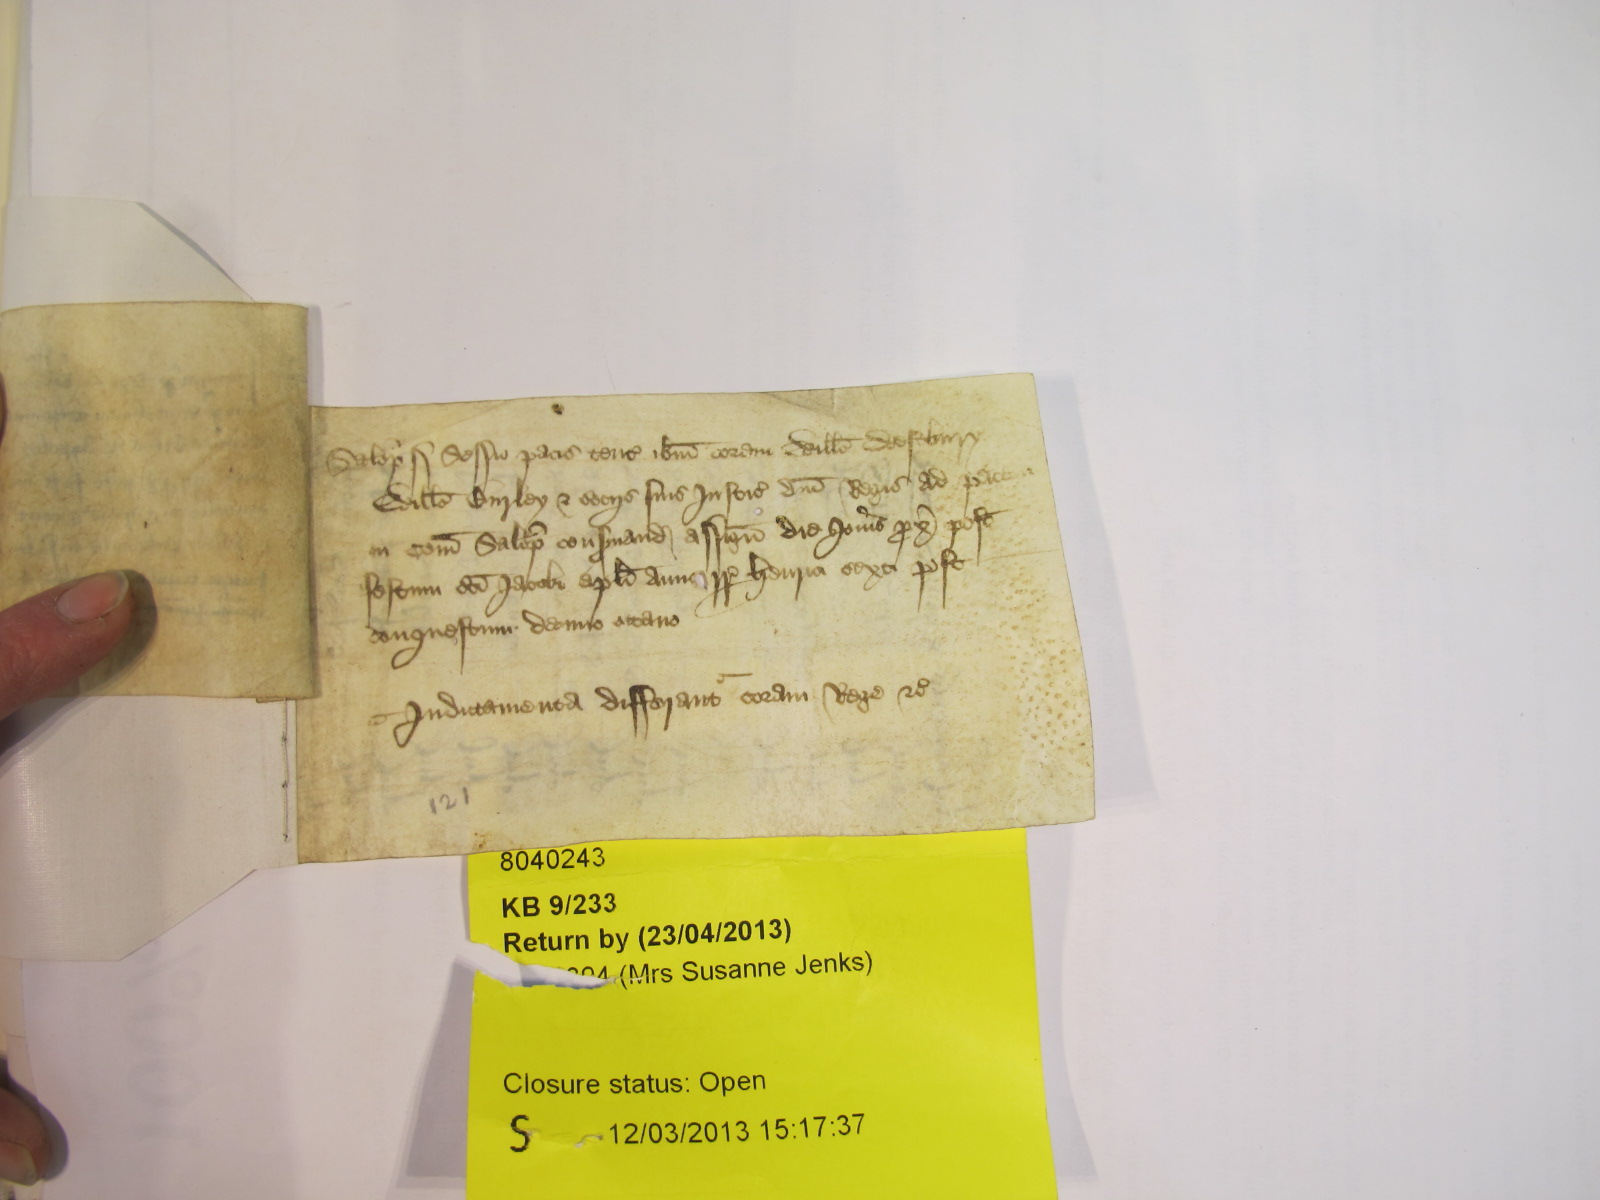 Salop ss Sessio pacis tent ibm coram Willo Westbury
Willo Burley & sociis suis Justic dni Regis ad pacem
in com Salop conservand assign die Jovis prox post
festum sci Jacobi apli Anno rr Henrici sexti post
conquestum decimo octavo
Indictamenta differant coram Rege &c
121
8040243
KB 9/233
Return by (23/04/2013)
(Mrs Susanne Jenks)
Closure status: Open
S 12/03/2013 15:17:37